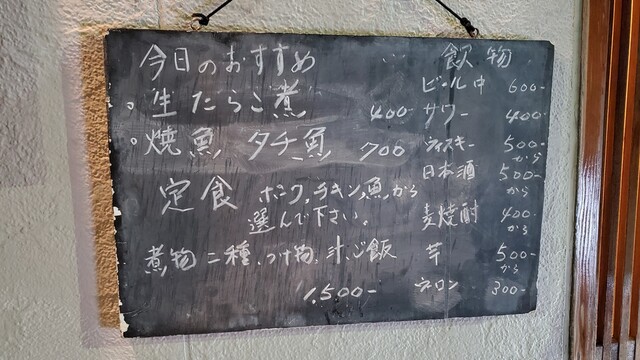 今日のおすすめ
○生たらこ煮 400-
○焼魚 タチ魚 700
定食 ポーク,チキン,魚,から
選んで下さい。
煮物二種、つけ物、汁、ご飯
1,500-
飲物
ビール中 600-
サワー 400-
ウィスキー 500-から
日本酒 500-から
麦焼酎 400-から
芋 500-から
300-